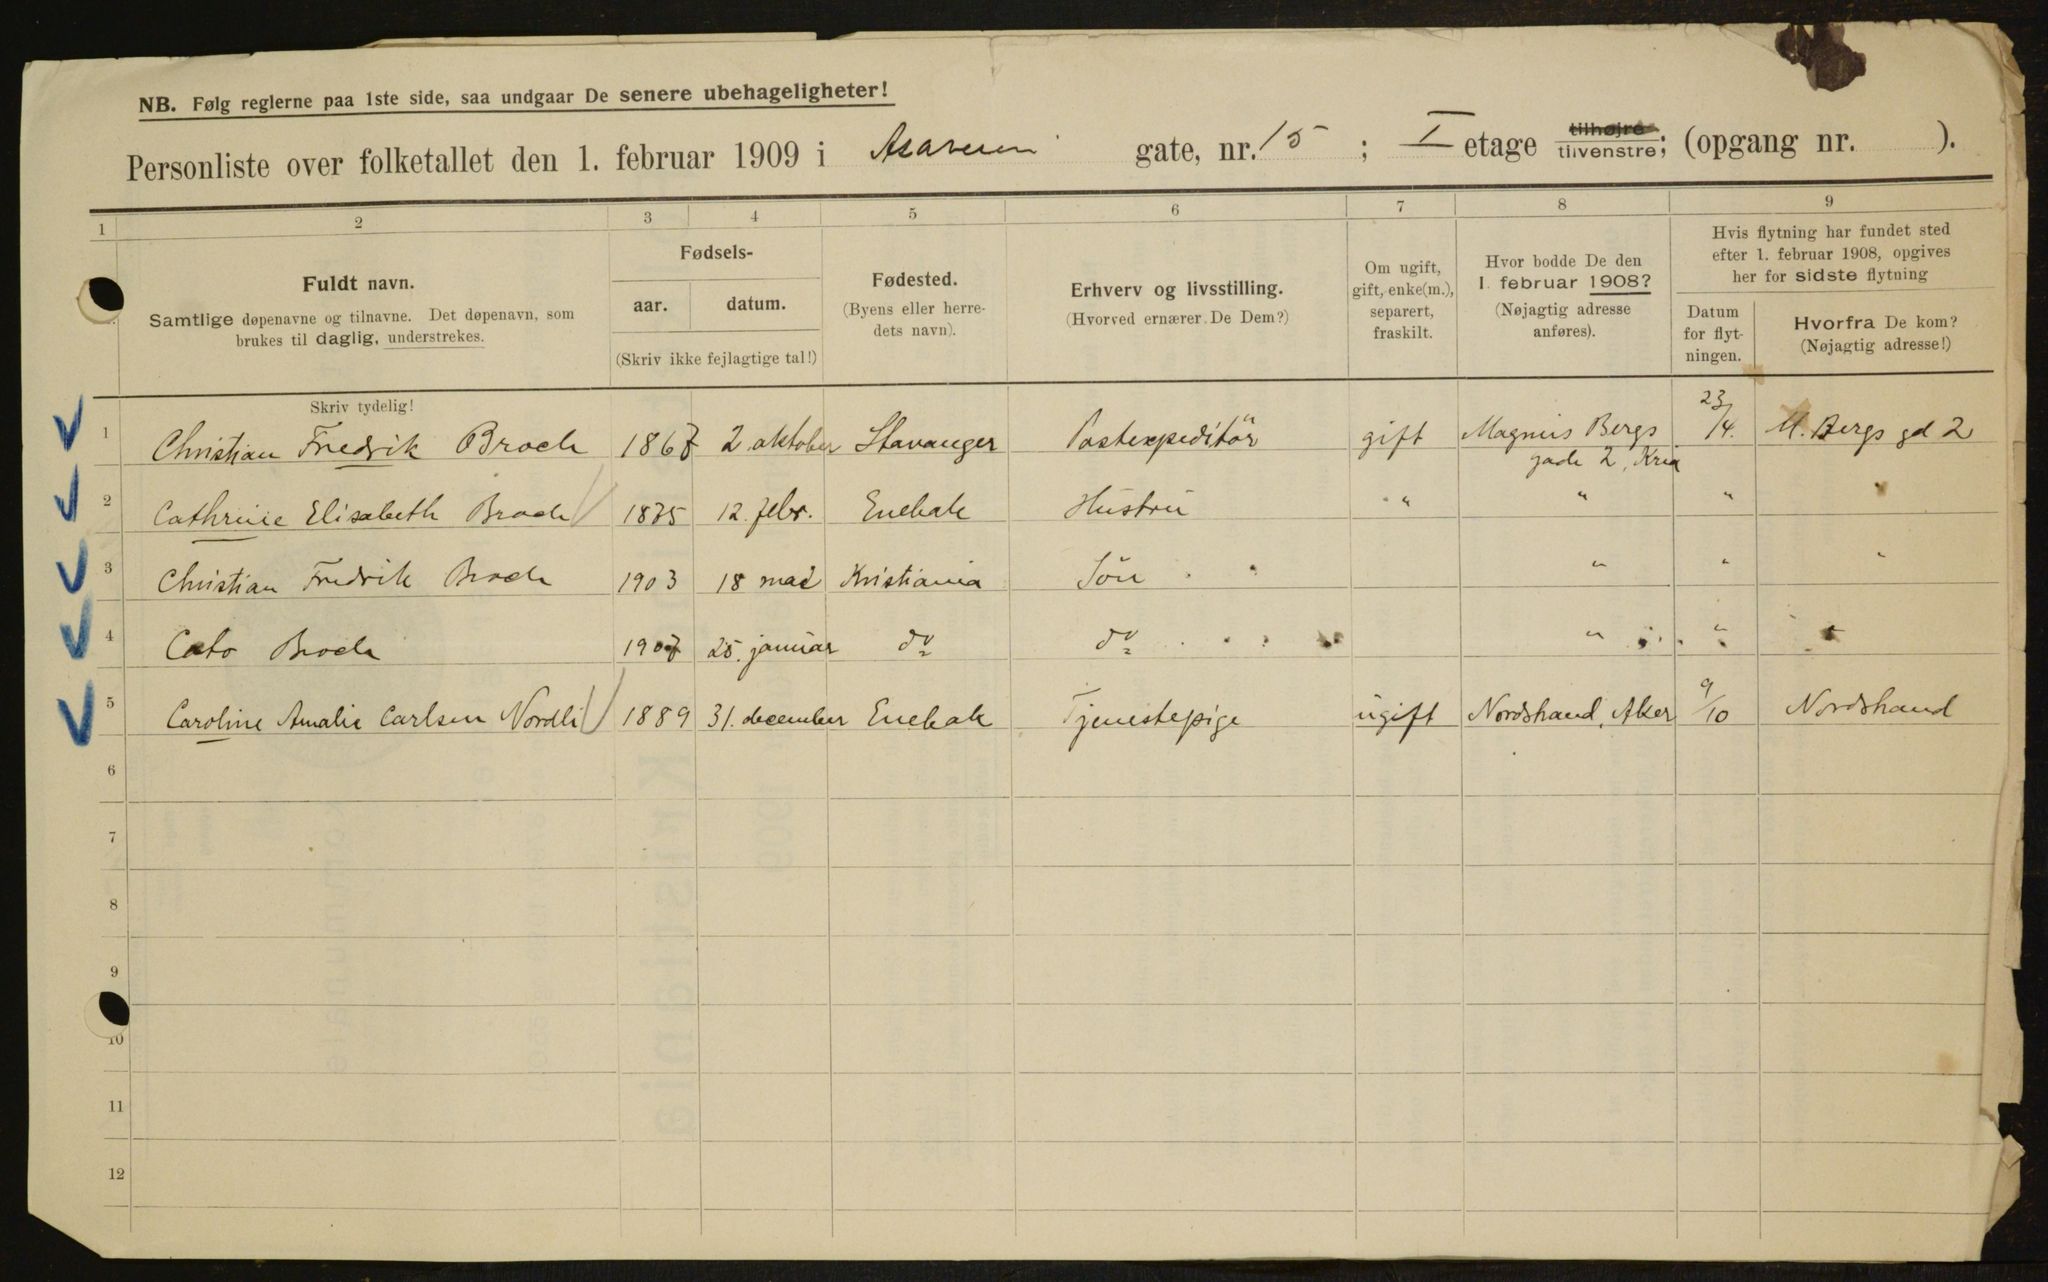 NB. Følg reglerne paa 1ste side, saa undgaar De senere ubehageligheter!
Personliste over folketallet den 1. februar 1909 i Asaveien gate, nr. 15; I etage tilhøjre tilvenstre; (opgang nr. ).
1 2 3 4 5 6 7 8 9
Fuldt navn.
Samtlige døpenavne og tilnavne. Det døpenavn, som
brukes til daglig, understrekes.
Fødsels-
aar. datum.
(Skriv ikke fejlagtige tal!)
Fødested.
(Byens eller herre-
dets navn).
Erhverv og livsstilling.
(Hvorved ernærer De Dem?)
Om ugift,
gift, enke(m.),
separert,
fraskilt.
Hvor bodde De den
1. februar 1908?
(Nøjagtig adresse
anføres).
Hvis flytning har fundet sted
efter 1. februar 1908, opgives
her for sidste flytning
Datum
for flyt-
ningen.
Hvorfra De kom?
(Nøjagtig adresse!)
Skriv tydelig!
1 Christian Fredrik Broch 1867 2. oktober Stavanger Postexpeditör gift Magnus Bergs gade 2, Kria 23/4. M. Bergs gd 2
2 Cathrine Elisabeth Broch 1875 12. febr. Enebak Hustru " " " "
3 Christian Fredrik Broch 1903 18 mai Kristiania Sön " " "
4 Cato Broch 1907 25. januar do do " " "
5 Caroline Amalie Carlsen Nordli 1889 31. december Enebak Tjenestepige ugift Nordstrand, Aker 9/10 Nordstrand
6
7
8
9
10
11
12